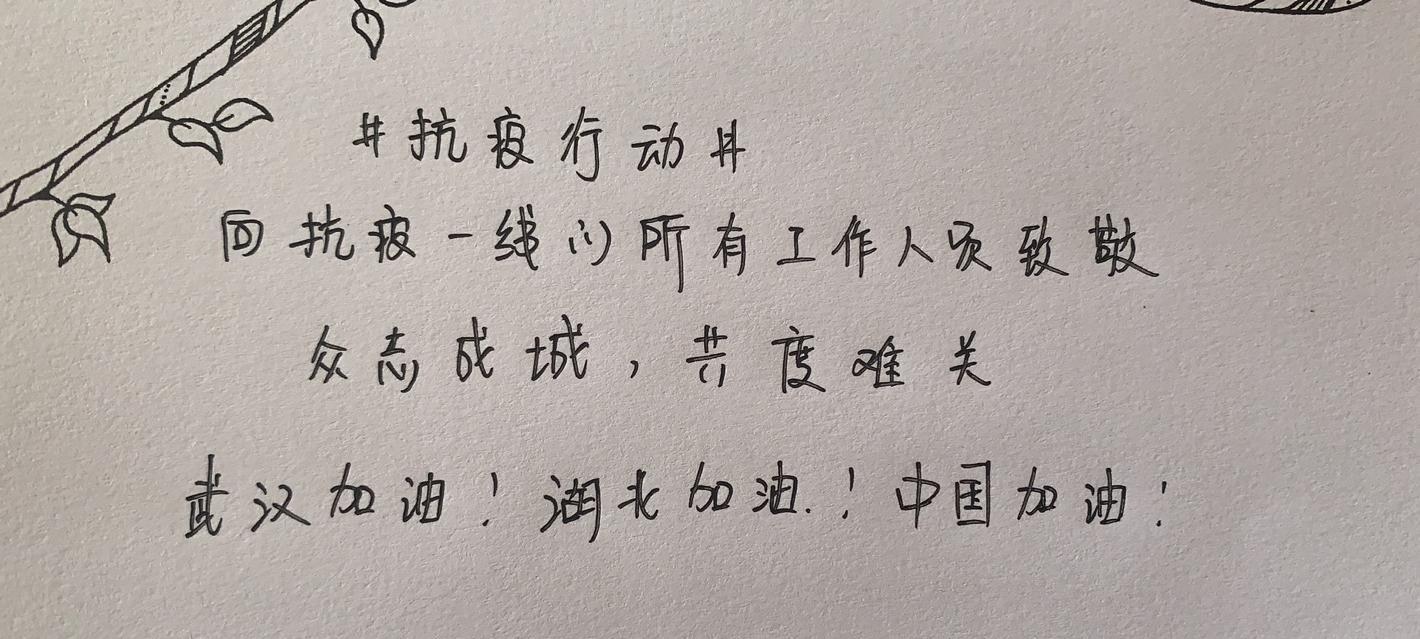 #抗疫行动#
向抗疫一线的所有工作人员致敬
众志成城，共度难关
武汉加油！湖北加油！中国加油！